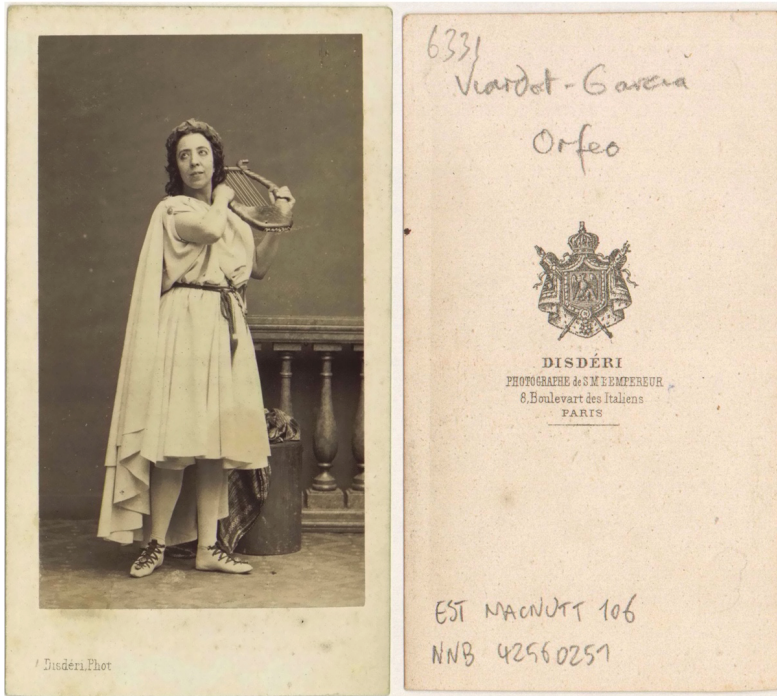 Disdéri, Phot
6331
Viardot-Garcia
Orfeo
DISDÉRI
PHOTOGRAPHE de S.M. L'EMPEREUR
8, Boulevart des Italiens
PARIS
EST MACNUTT 106
NNB 42560251